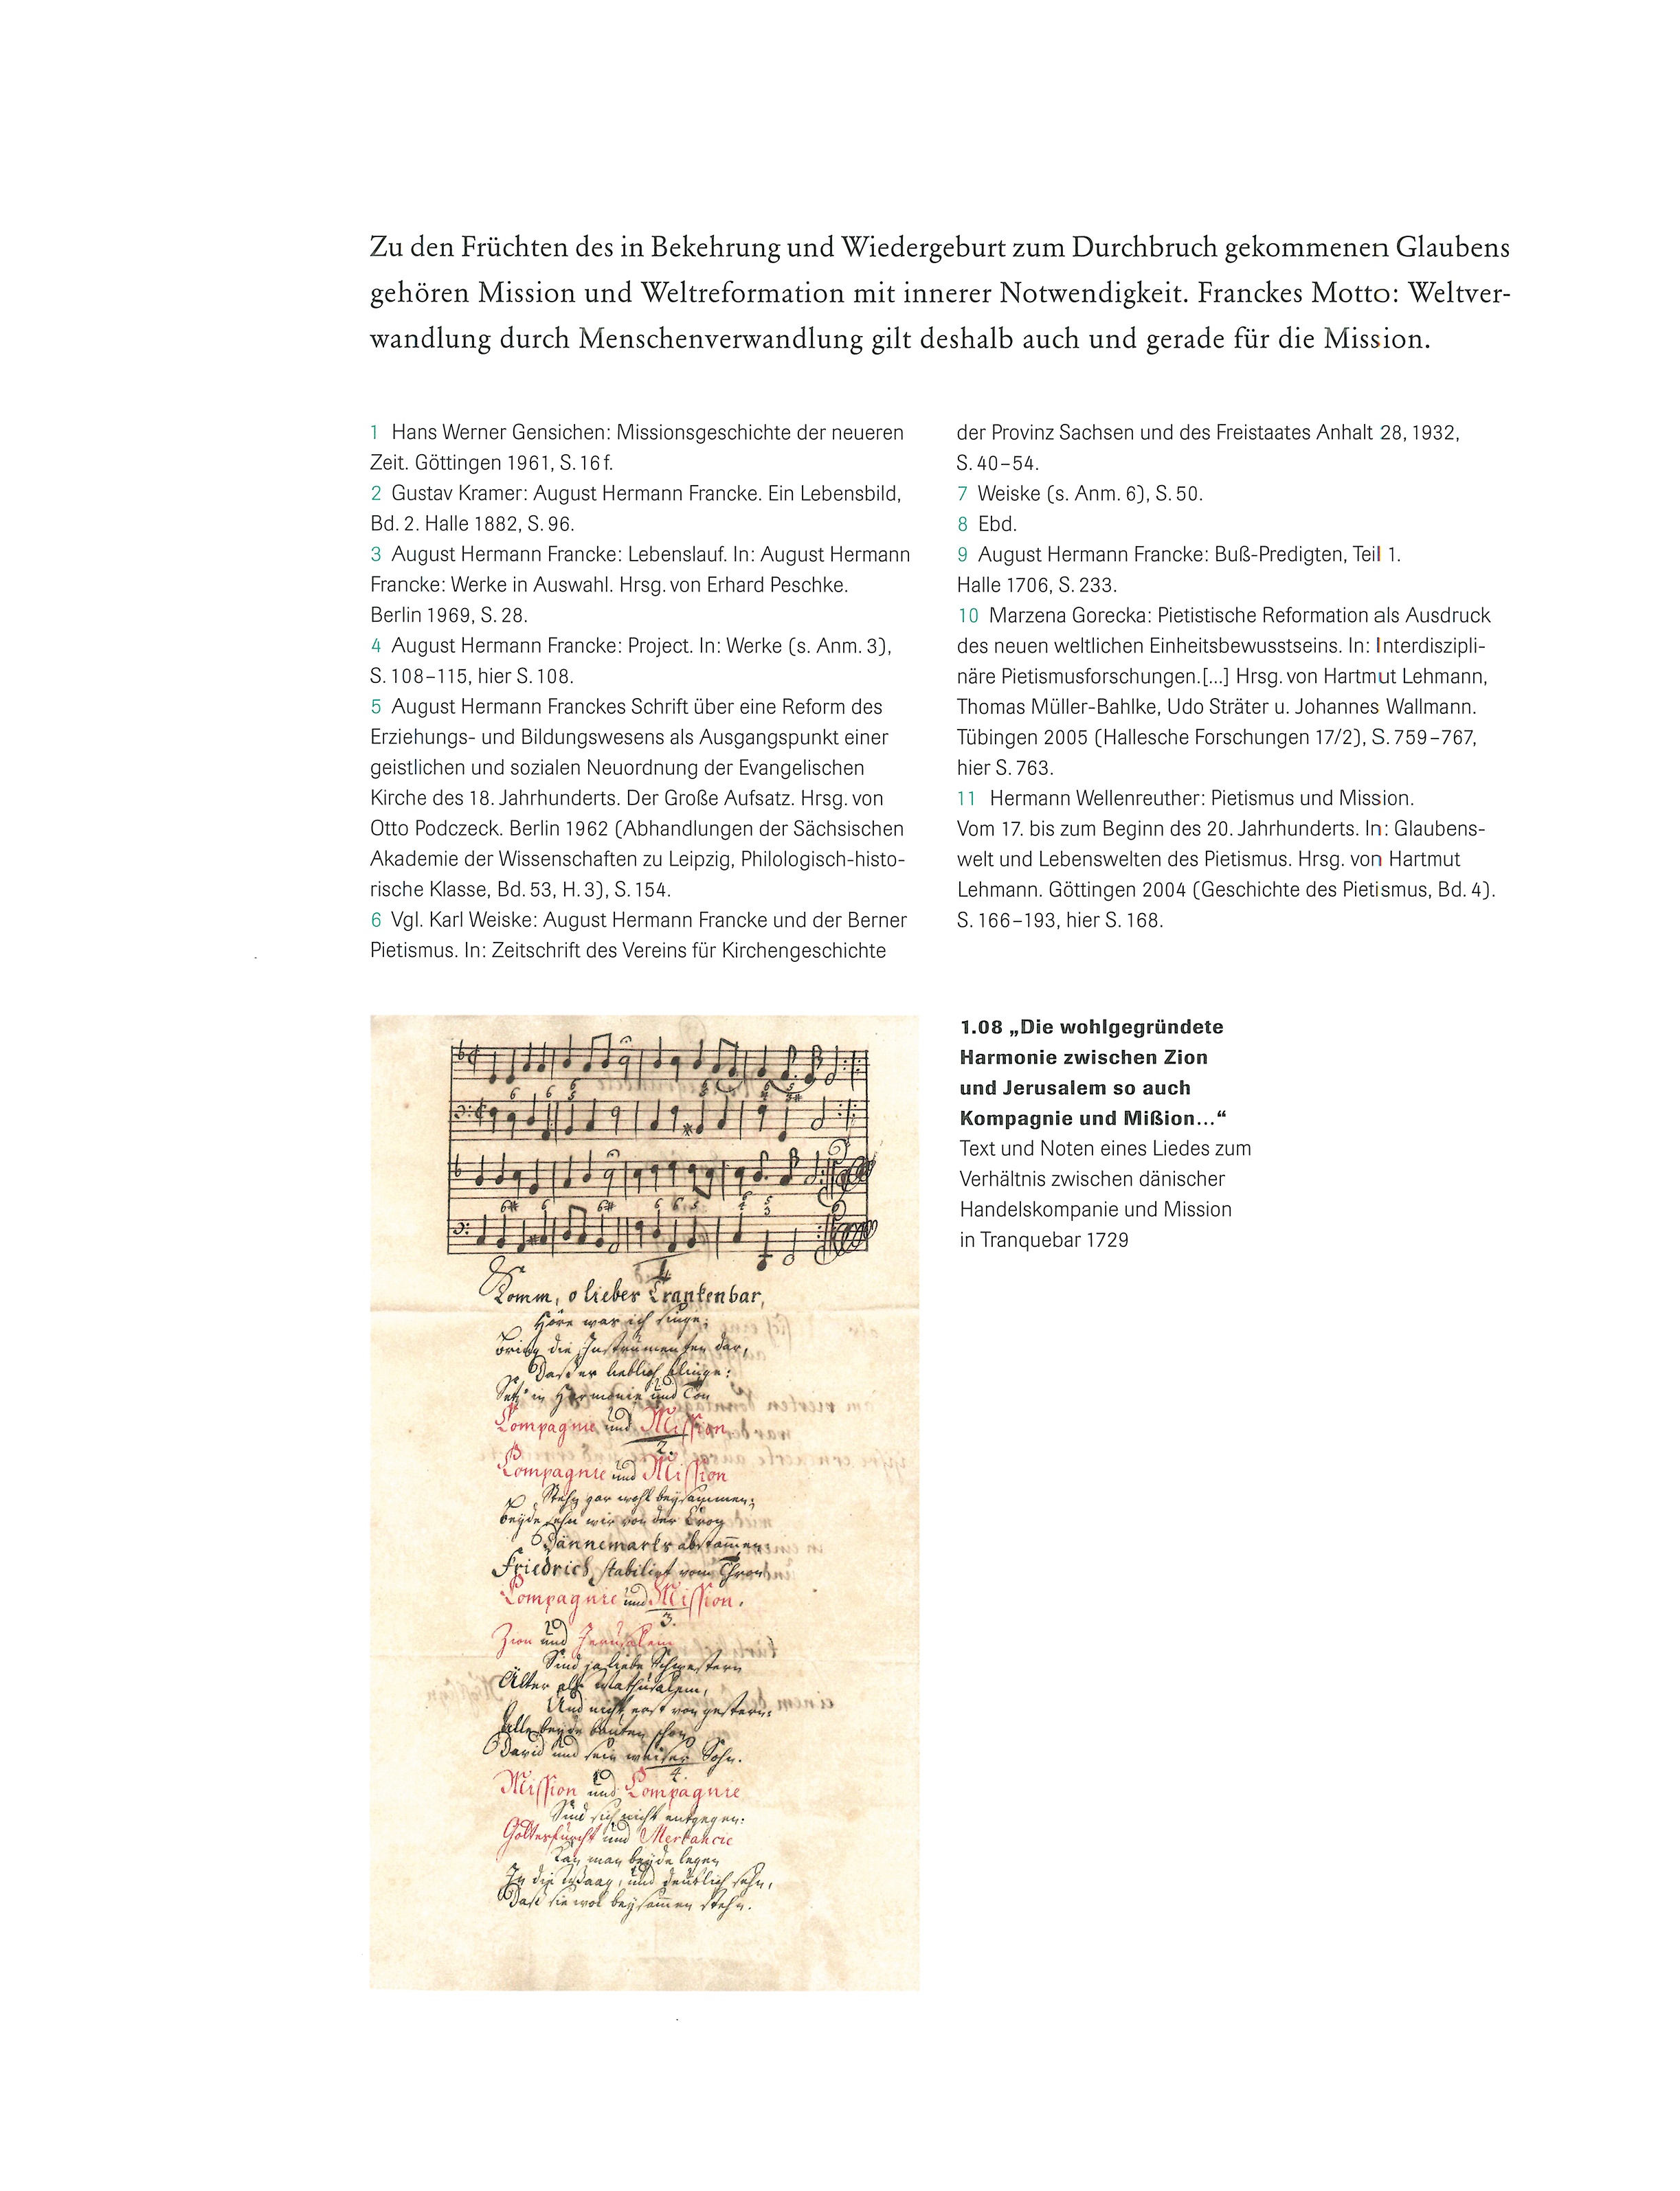 Zu den Früchten des in Bekehrung und Wiedergeburt zum Durchbruch gekommenen Glaubens
gehören Mission und Weltreformation mit innerer Notwendigkeit. Franckes Motto: Weltver-
wandlung durch Menschenverwandlung gilt deshalb auch und gerade für die Mission.
1 Hans Werner Gensichen: Missionsgeschichte der neueren
Zeit. Göttingen 1961, S. 16 f.
2 Gustav Kramer: August Hermann Francke. Ein Lebensbild,
Bd. 2. Halle 1882, S. 96.
3 August Hermann Francke: Lebenslauf. In: August Hermann
Francke: Werke in Auswahl. Hrsg. von Erhard Peschke.
Berlin 1969, S. 28.
4 August Hermann Francke: Project. In: Werke (s. Anm. 3),
S. 108–115, hier S. 108.
5 August Hermann Franckes Schrift über eine Reform des
Erziehungs- und Bildungswesens als Ausgangspunkt einer
geistlichen und sozialen Neuordnung der Evangelischen
Kirche des 18. Jahrhunderts. Der Große Aufsatz. Hrsg. von
Otto Podczeck. Berlin 1962 (Abhandlungen der Sächsischen
Akademie der Wissenschaften zu Leipzig, Philologisch-histo-
rische Klasse, Bd. 53, H. 3), S. 154.
6 Vgl. Karl Weiske: August Hermann Francke und der Berner
Pietismus. In: Zeitschrift des Vereins für Kirchengeschichte
der Provinz Sachsen und des Freistaates Anhalt 28, 1932,
S. 40–54.
7 Weiske (s. Anm. 6), S. 50.
8 Ebd.
9 August Hermann Francke: Buß-Predigten, Teil 1.
Halle 1706, S. 233.
10 Marzena Gorecka: Pietistische Reformation als Ausdruck
des neuen weltlichen Einheitsbewusstseins. In: Interdiszipli-
näre Pietismusforschungen.[...] Hrsg. von Hartmut Lehmann,
Thomas Müller-Bahlke, Udo Sträter u. Johannes Wallmann.
Tübingen 2005 (Hallesche Forschungen 17/2), S. 759–767,
hier S. 763.
11 Hermann Wellenreuther: Pietismus und Mission.
Vom 17. bis zum Beginn des 20. Jahrhunderts. In: Glaubens-
welt und Lebenswelten des Pietismus. Hrsg. von Hartmut
Lehmann. Göttingen 2004 (Geschichte des Pietismus, Bd. 4).
S. 166–193, hier S. 168.
1.
Komm, o lieber Trankenbar,
Höre was ich singe;
Bring die Instrumenten dar,
Daß er lieblich klinge:
Setz' in Harmonie und Ton
Compagnie und Mission
2.
Compagnie und Mission
Stehn gar wohl beysammen;
Beyde sehn wir von der Cron
Dännemarks abstam̄en
Friedrich stabilirt vom Thron
Compagnie und Mission.
3.
Zion und Jerusalem
Sind ja liebe Schwestern
Älter als Mathusalem,
Und nicht erst von gestern:
Alle beyde bauten schon
David und sein weiser Sohn.
4.
Mission und Compagnie
Sind sich nicht entgegen:
Gottesfurcht und Merkancie
Kan man beyde legen
In die Waag, und deutlich sehn,
Daß sie wol beysam̄en stehn.
1.08 „Die wohlgegründete
Harmonie zwischen Zion
und Jerusalem so auch
Kompagnie und Mißion...“
Text und Noten eines Liedes zum
Verhältnis zwischen dänischer
Handelskompanie und Mission
in Tranquebar 1729